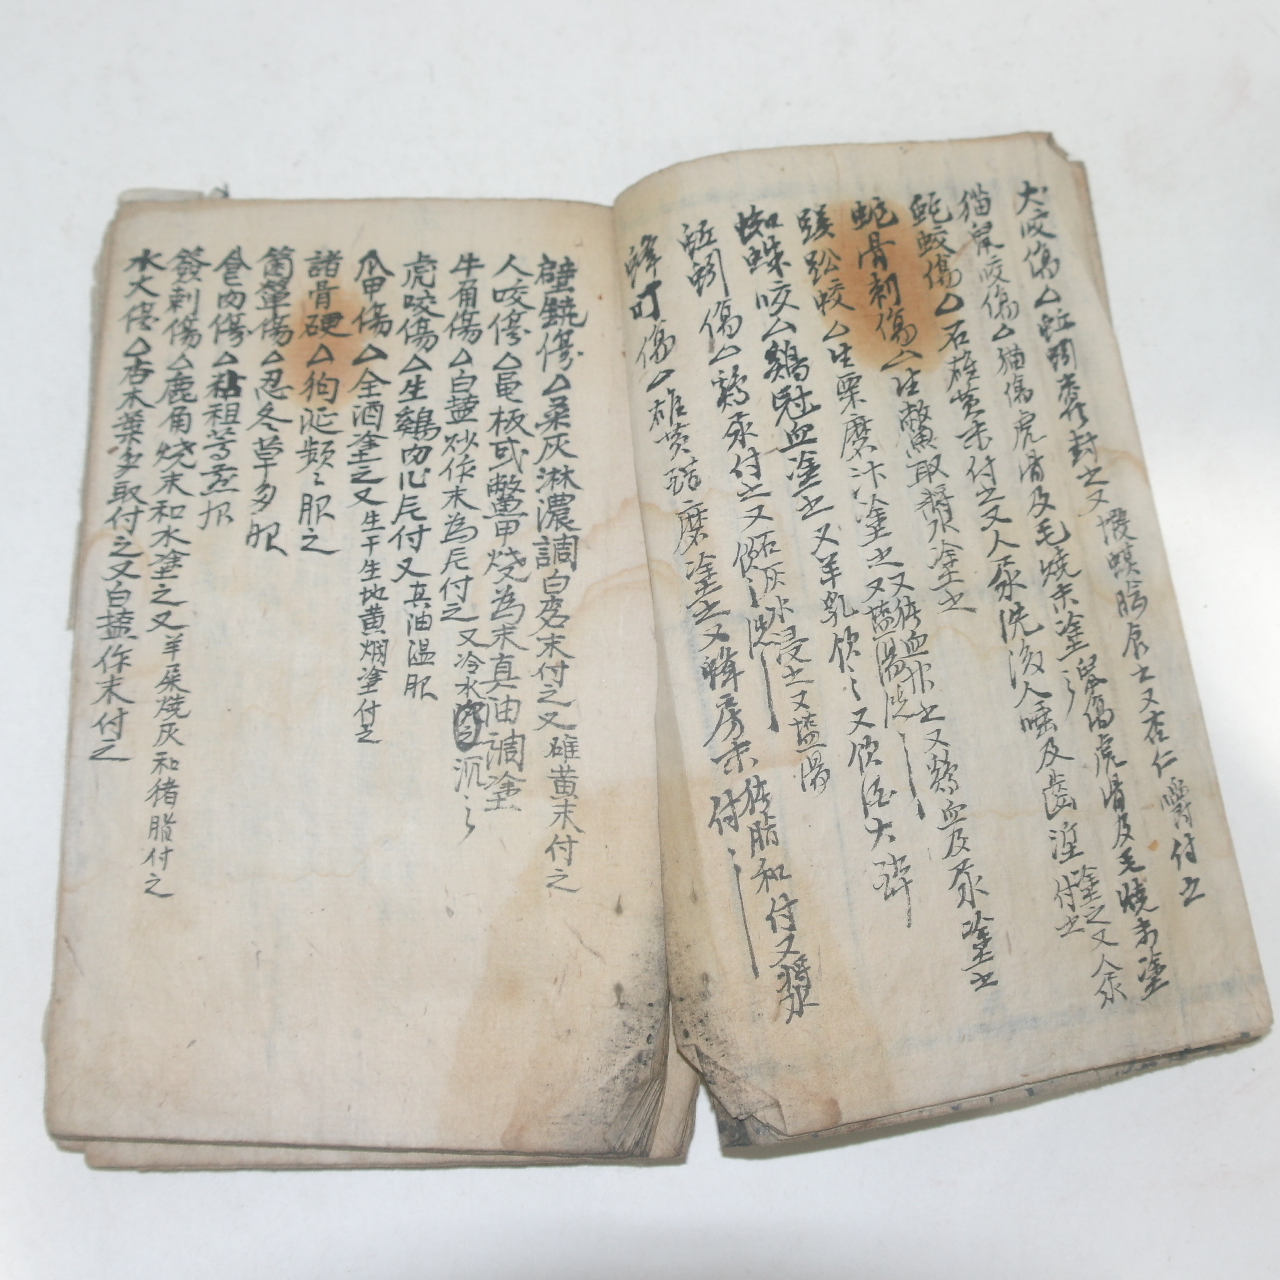 犬咬傷△蚯蚓糞作封之又蝦蟆膾食之又杏仁嚼付之
猫鼠咬傷△猫傷虎骨及毛燒末塗之鼠傷虎骨及毛燒末塗
蛇蛟傷△石雄黃末付之又人尿洗後人唾及齒涅塗之又人尿付之
蛇骨刺傷△生鱉取醬塗之又鷄血及尿塗之
螇蚣蛟△生栗磨汁塗之又盐湯洗之
蜘蛛咬△鷄冠血塗之又羊乳飮之又飮酒大醉
蚯蚓傷△鷄尿付之又石灰水浸之又盐湯
蜂叮傷△雄黃醋磨塗之又蜂房末猪脂和付又醬水付之
壁鏡傷△桑灰淋濃調白礬末付之又雄黃末付之
人咬傷△黽板或鱉甲燒為末真油調塗
牛角傷△白盐炒作末為凡付之又冷水沉之
虎咬傷△生鷄肉心凡付又真油温服
爪甲傷△全酒塗之又生干生地黄烟塗付之
諸骨硬△狗涎頻頻服之
菌蕈傷△忍冬草多服
食肉傷△秥租等煮服
簽刺傷△鹿角燒末和水塗之又羊屎燒灰和猪脂付之
水火傷△杏木葉多取付之又白盐作末付之